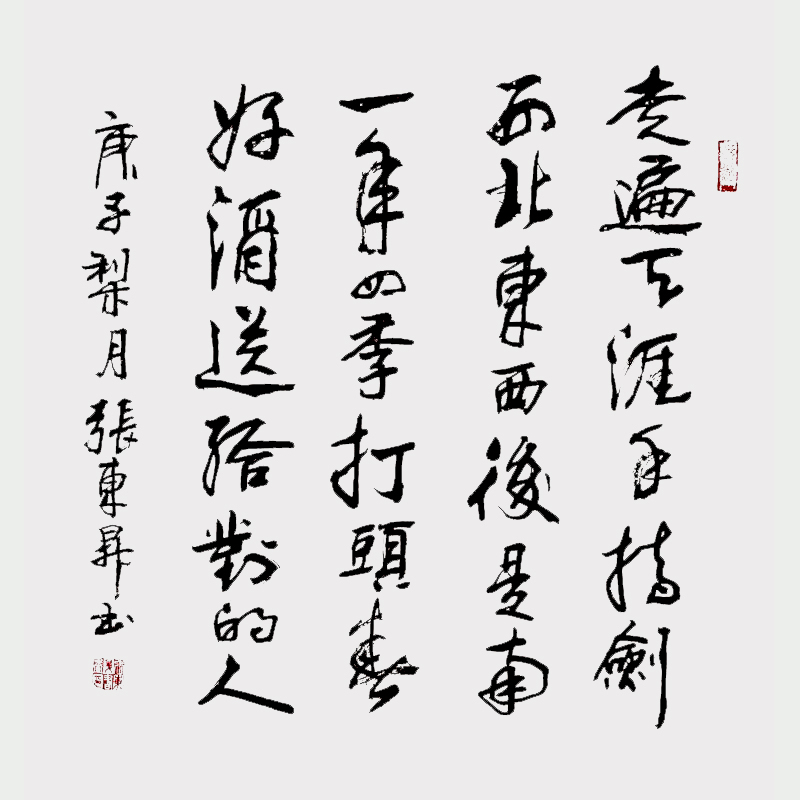 走遍天涯手持劍
面北東西後是南
一年四季打頭春
好酒送給對的人
庚子梨月張東昇书